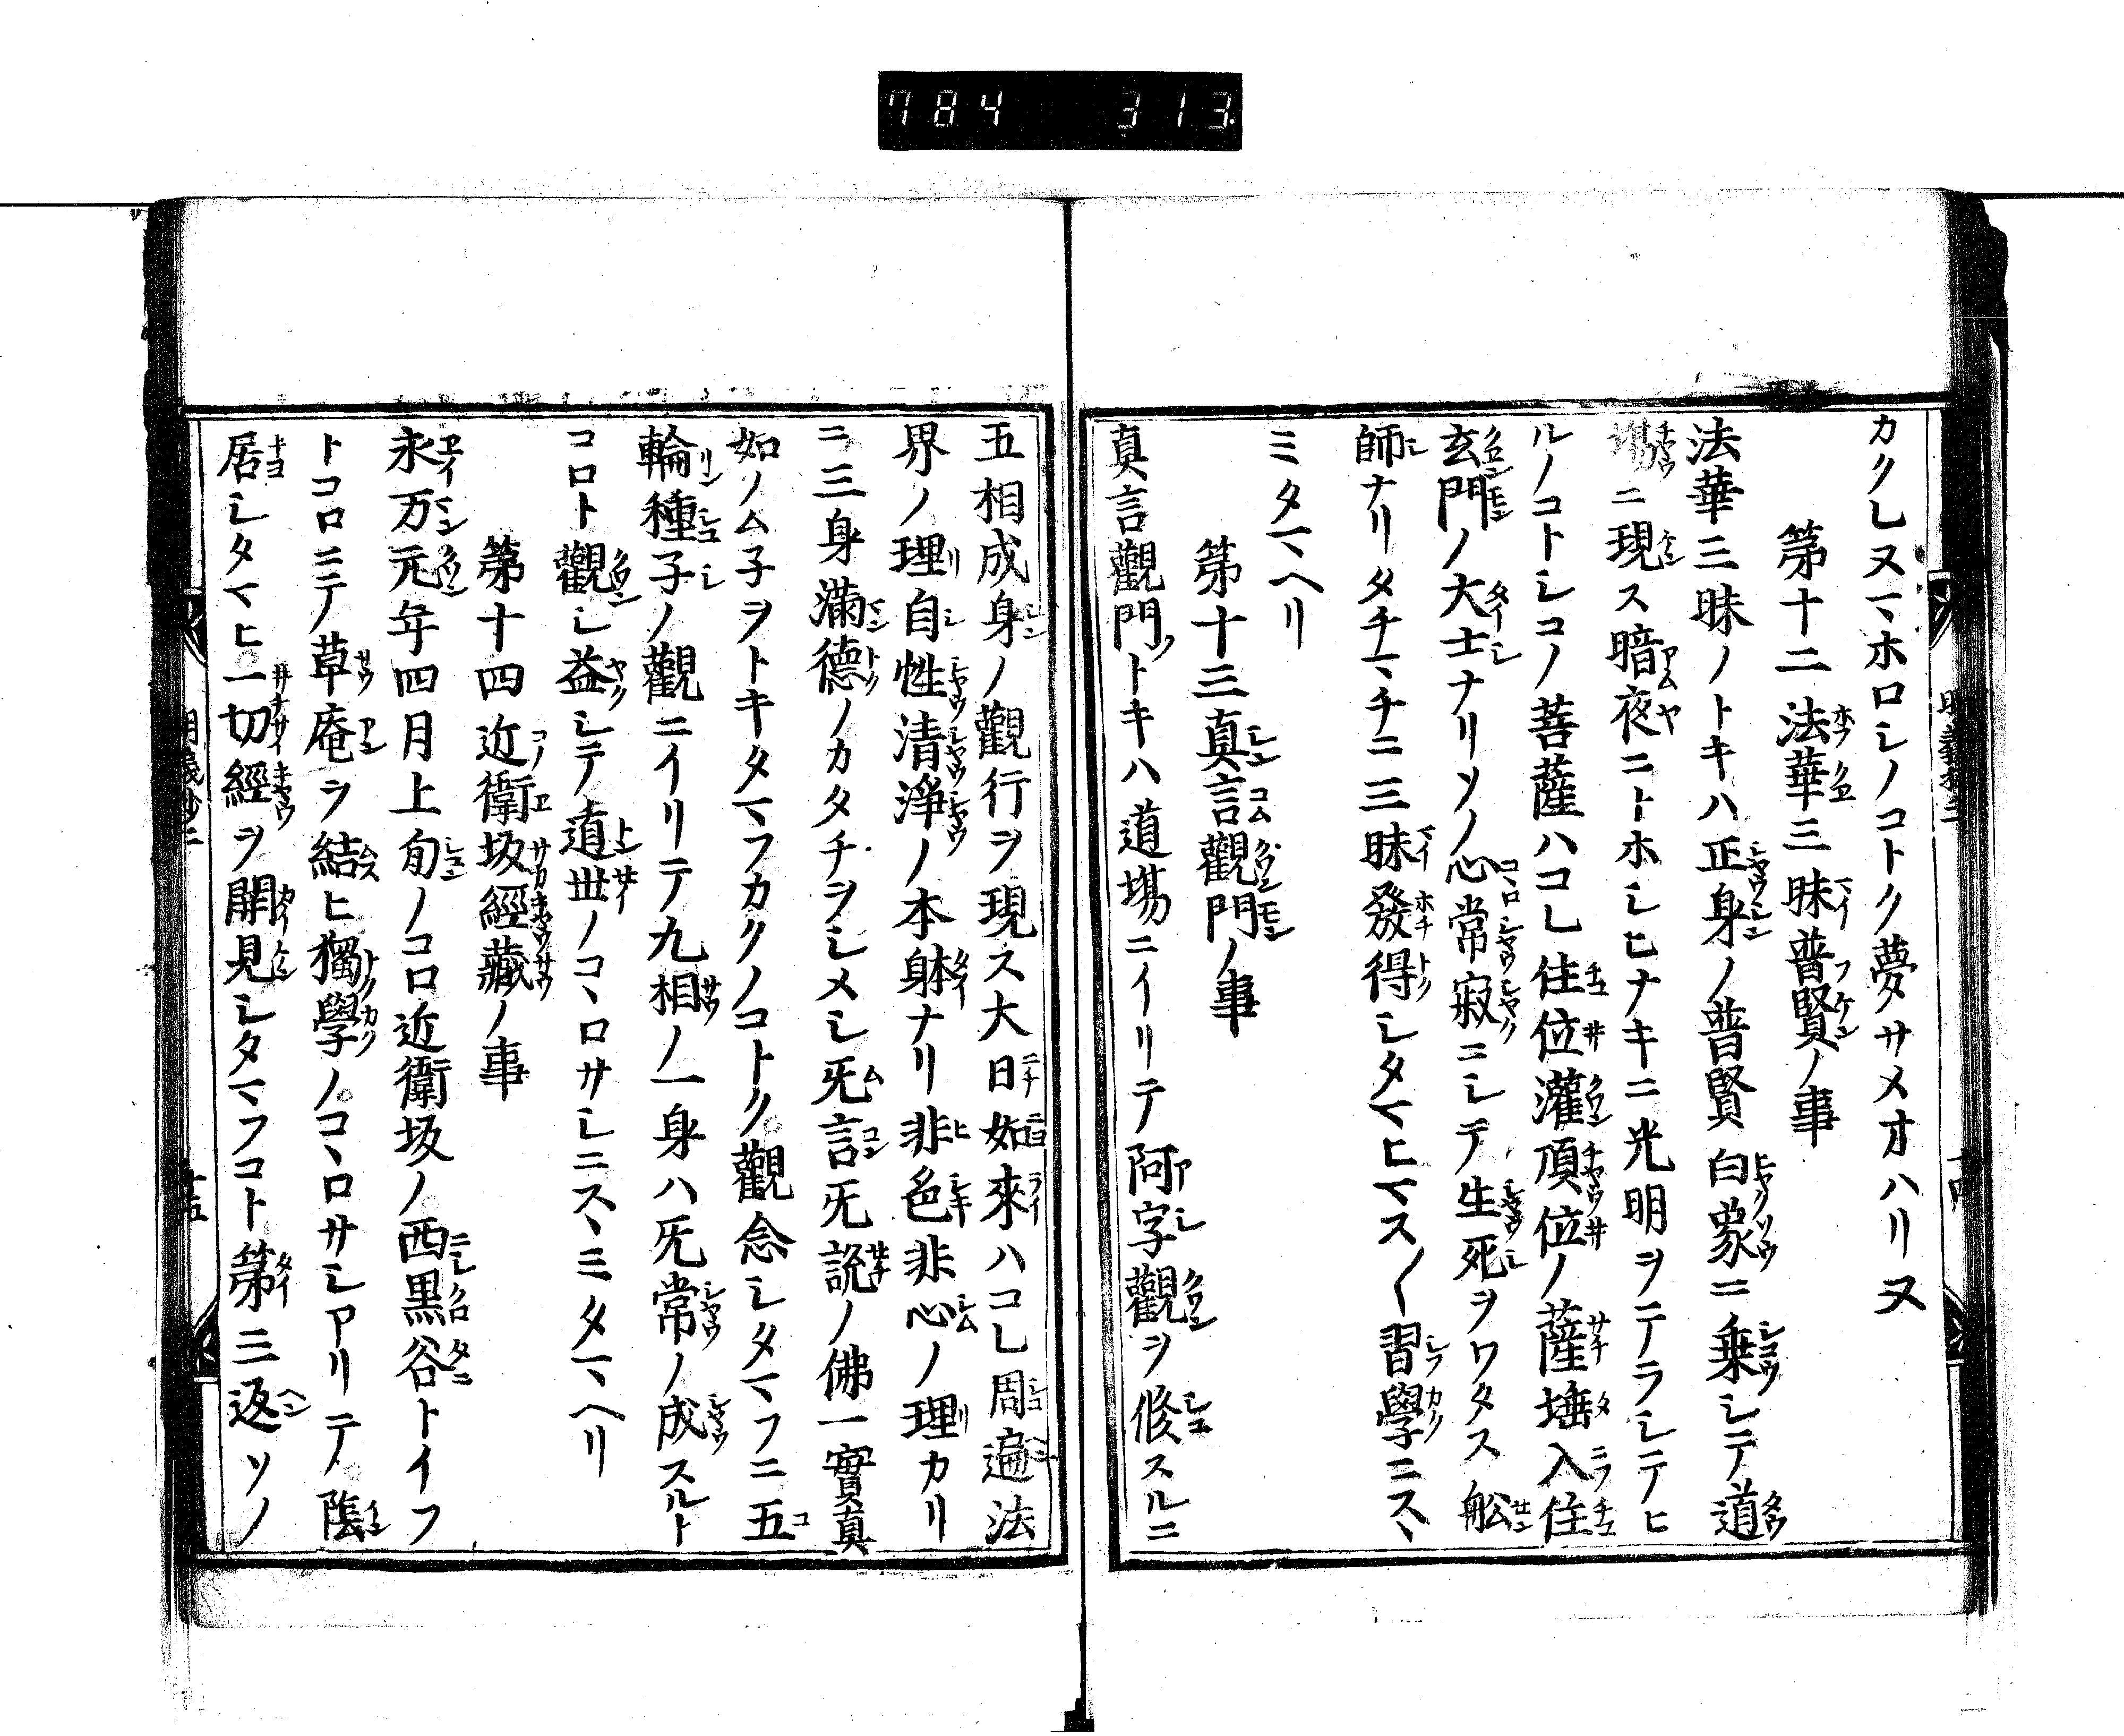 784 313
カクレヌマホロシノコトク夢サメオハリヌ
第十二法華三昧普賢ノ事
法華三昧ノトキハ正身ノ普賢白象ニ乗シテ道
場ニ現ス暗夜ニトホシヒナキニ光明ヲテラシテヒ
ルノコトシコノ菩薩ハコレ住位灌頂位ノ薩埵入住
玄門ノ大士ナリソノ心常寂ニシテ生死ヲワタス舩
師ナリタチマチニ三昧發得シタマヒマス〱習學ニスヽ
ミタマヘリ
第十三真言觀門ノ事
真言觀門ノトキハ道場ニイリテ阿字觀ヲ修スルニ
五相成身ノ觀行ヲ現ス大日如來ハコレ周遍法
界ノ理自性清淨ノ本躰ナリ非色非心ノ理カリ
ニ三身滿德ノカタチヲシメシ旡言旡説ノ佛一實真
如ノムネヲトキタマフカクノコトク觀念シタマフニ五
輪種子ノ觀ニイリテ九相ノ一身ハ旡常ノ成スルト
コロト觀シ益シテ遁世ノコヽロサシニスヽミタマヘリ
第十四近衛坂經藏ノ事
永万元年四月上旬ノコロ近衛坂ノ西黒谷トイフ
トコロニテ草庵ヲ結ヒ獨學ノコヽロサシアリテ隂
居シタマヒ一切經ヲ開見シタマフコト第三返ソノ